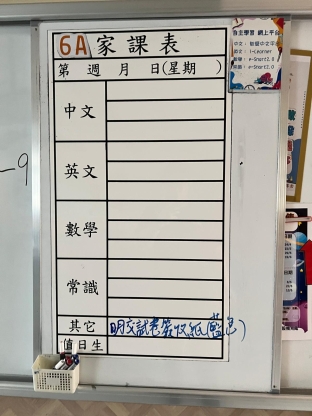 6A 家課表
第 週 月 日(星期 )
中文
英文
數學
常識
其它 明交試卷簽收紙(藍色)
值日生
自主學習 網上平台
i-Learner
e-Smart2.0
e-Smart2.0
-9